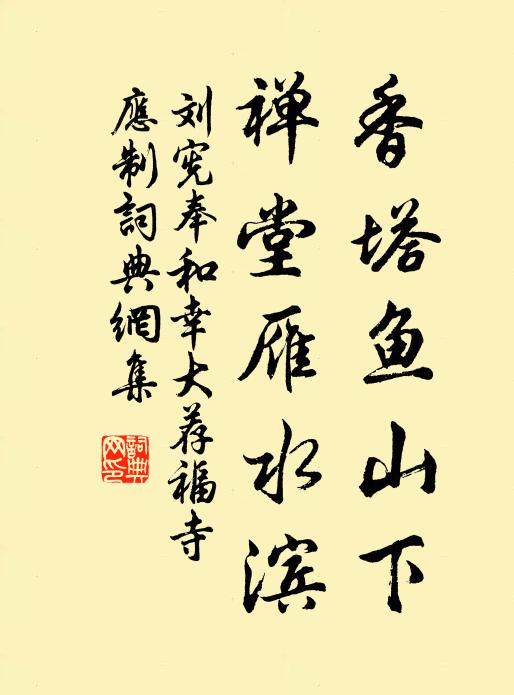 香塔鱼山下
禅堂雁水滨
刘宪奉和幸大荐福寺
應制詞典網集
詞典網印